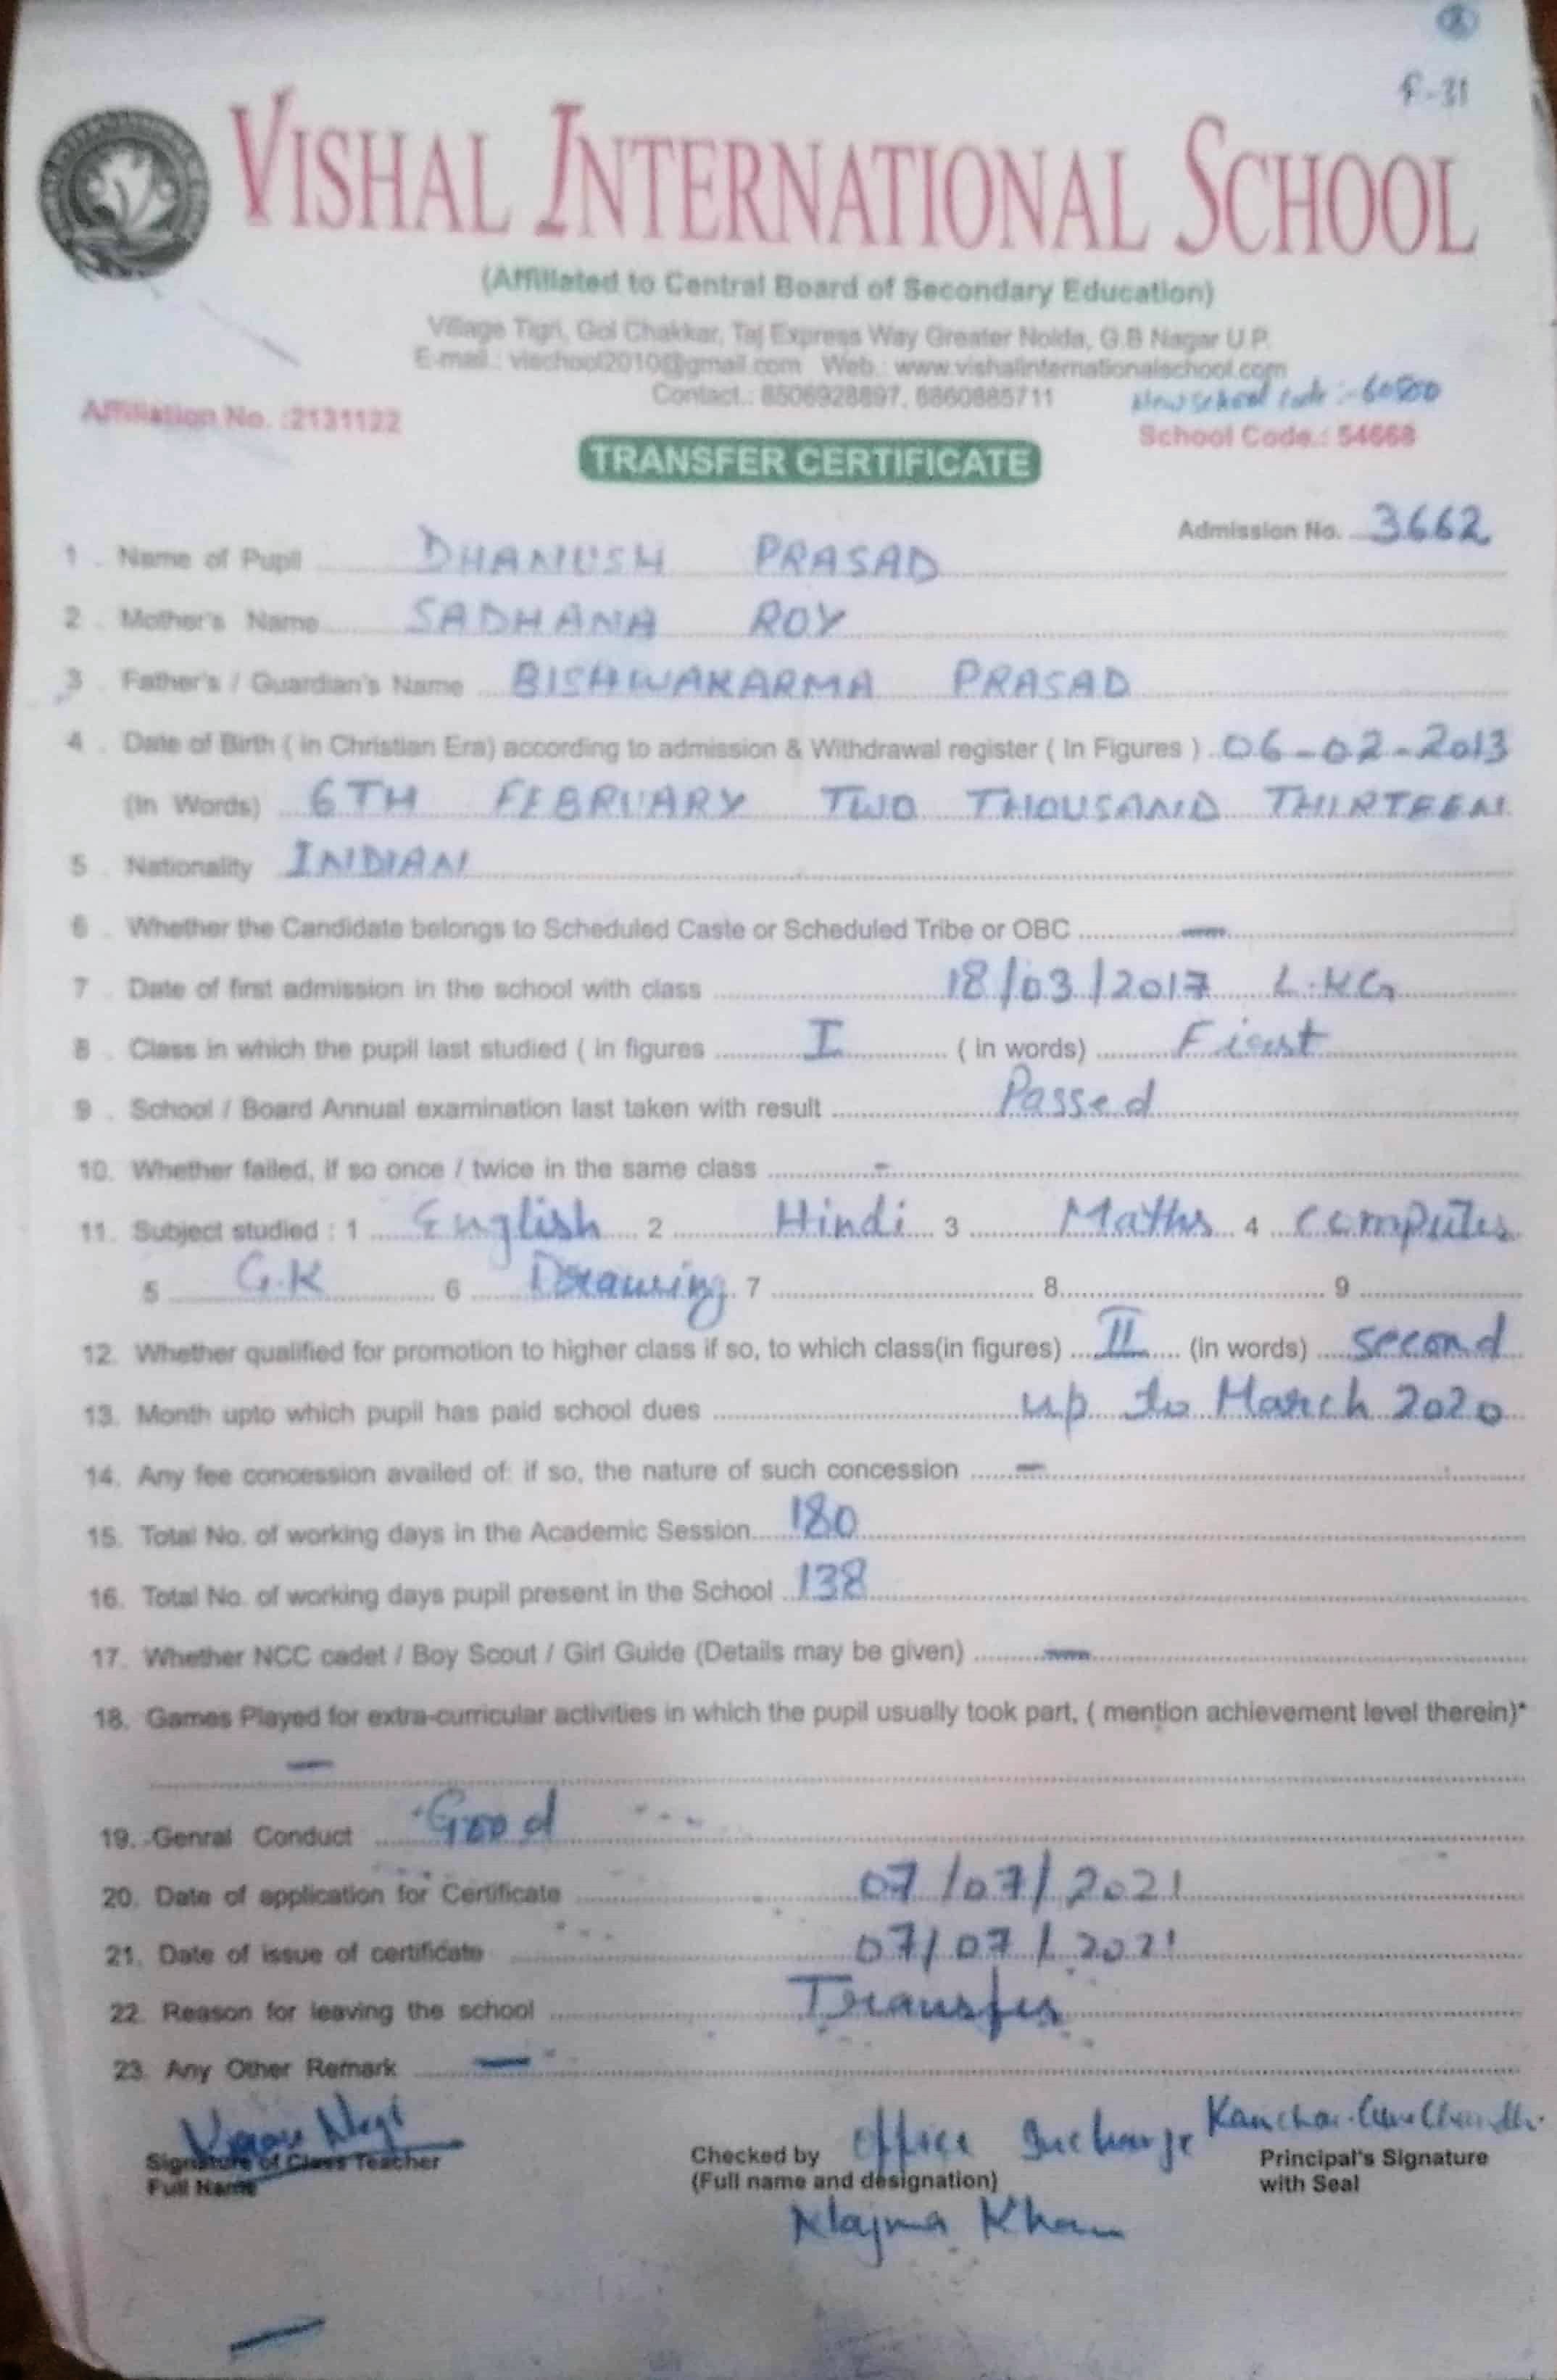 F-31
VISHAL INTERNATIONAL SCHOOL
(Affiliated to Central Board of Secondary Education)
Village Tigri, Gol Chakkar, Taj Express Way Greater Noida, G.B Nagar U.P.
E-mail.: vischool2010@gmail.com Web.: www.vishalinternationalschool.com
Contact.: 8506928897, 8860885711
New school code :- 60500
Affiliation No. :2131122
School Code.: 54668
TRANSFER CERTIFICATE
Admission No. 3662
1 . Name of Pupil DHANUSH PRASAD
2 . Mother's Name SADHANA ROY
3 . Father's / Guardian's Name BISHWAKARMA PRASAD
4 . Date of Birth ( in Christian Era) according to admission & Withdrawal register ( In Figures ) 06-02-2013
(In Words) 6TH FEBRUARY TWO THOUSAND THIRTEEN
5 . Nationality INDIAN
6 . Whether the Candidate belongs to Scheduled Caste or Scheduled Tribe or OBC —
7 . Date of first admission in the school with class 18/03/2017 L.KG
8 . Class in which the pupil last studied ( in figures I ( in words) First
9 . School / Board Annual examination last taken with result Passed
10. Whether failed, if so once / twice in the same class -
11. Subject studied : 1 English 2 Hindi 3 Maths 4 Computer
5 G.K 6 Drawing 7 8 9
12. Whether qualified for promotion to higher class if so, to which class(in figures) II (in words) second
13. Month upto which pupil has paid school dues up to March 2020
14. Any fee concession availed of: if so, the nature of such concession —
15. Total No. of working days in the Academic Session 180
16. Total No. of working days pupil present in the School 138
17. Whether NCC cadet / Boy Scout / Girl Guide (Details may be given) —
18. Games Played for extra-curricular activities in which the pupil usually took part, ( mention achievement level therein)*
—
19. Genral Conduct Good
20. Date of application for Certificate 07/07/2021
21. Date of issue of certificate 07/07/2021
22. Reason for leaving the school Transfer
23. Any Other Remark —
Negi
Office Incharge
Signature of Class Teacher
Checked by
Principal's Signature
Full Name
(Full name and designation)
with Seal
Najma Khan